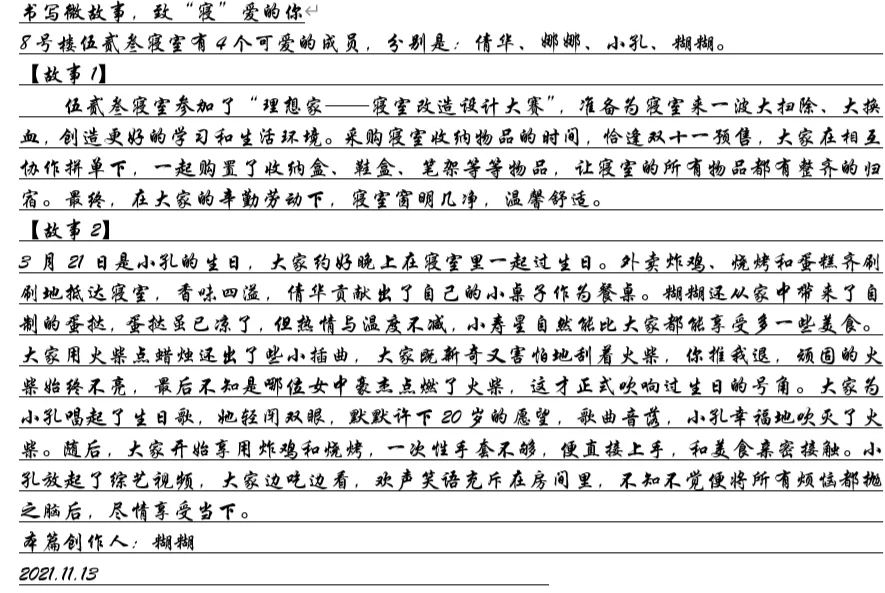 书写微故事，致“寝”爱的你
8号楼伍贰叁寝室有4个可爱的成员，分别是：倩华、娜娜、小孔、糊糊。
【故事1】
伍贰叁寝室参加了“理想家——寝室改造设计大赛”，准备为寝室来一波大扫除、大换
血，创造更好的学习和生活环境。采购寝室收纳物品的时间，恰逢双十一预售，大家在相互
协作拼单下，一起购置了收纳盒、鞋盒、笔架等等物品，让寝室的所有物品都有整齐的归
宿。最终，在大家的辛勤劳动下，寝室窗明几净，温馨舒适。
【故事2】
3月21日是小孔的生日，大家约好晚上在寝室里一起过生日。外卖炸鸡、烧烤和蛋糕齐刷
刷地抵达寝室，香味四溢，倩华贡献出了自己的小桌子作为餐桌。糊糊还从家中带来了自
制的蛋挞，蛋挞虽已凉了，但热情与温度不减，小寿星自然能比大家都能享受多一些美食。
大家用火柴点蜡烛还出了些小插曲，大家既新奇又害怕地刮着火柴，你推我退，顽固的火
柴始终不亮，最后不知是哪位女中豪杰点燃了火柴，这才正式吹响过生日的号角。大家为
小孔唱起了生日歌，她轻闭双眼，默默许下20岁的愿望，歌曲音落，小孔幸福地吹灭了火
柴。随后，大家开始享用炸鸡和烧烤，一次性手套不够，便直接上手，和美食亲密接触。小
孔放起了综艺视频，大家边吃边看，欢声笑语充斥在房间里，不知不觉便将所有烦恼都抛
之脑后，尽情享受当下。
本篇创作人：糊糊
2021.11.13